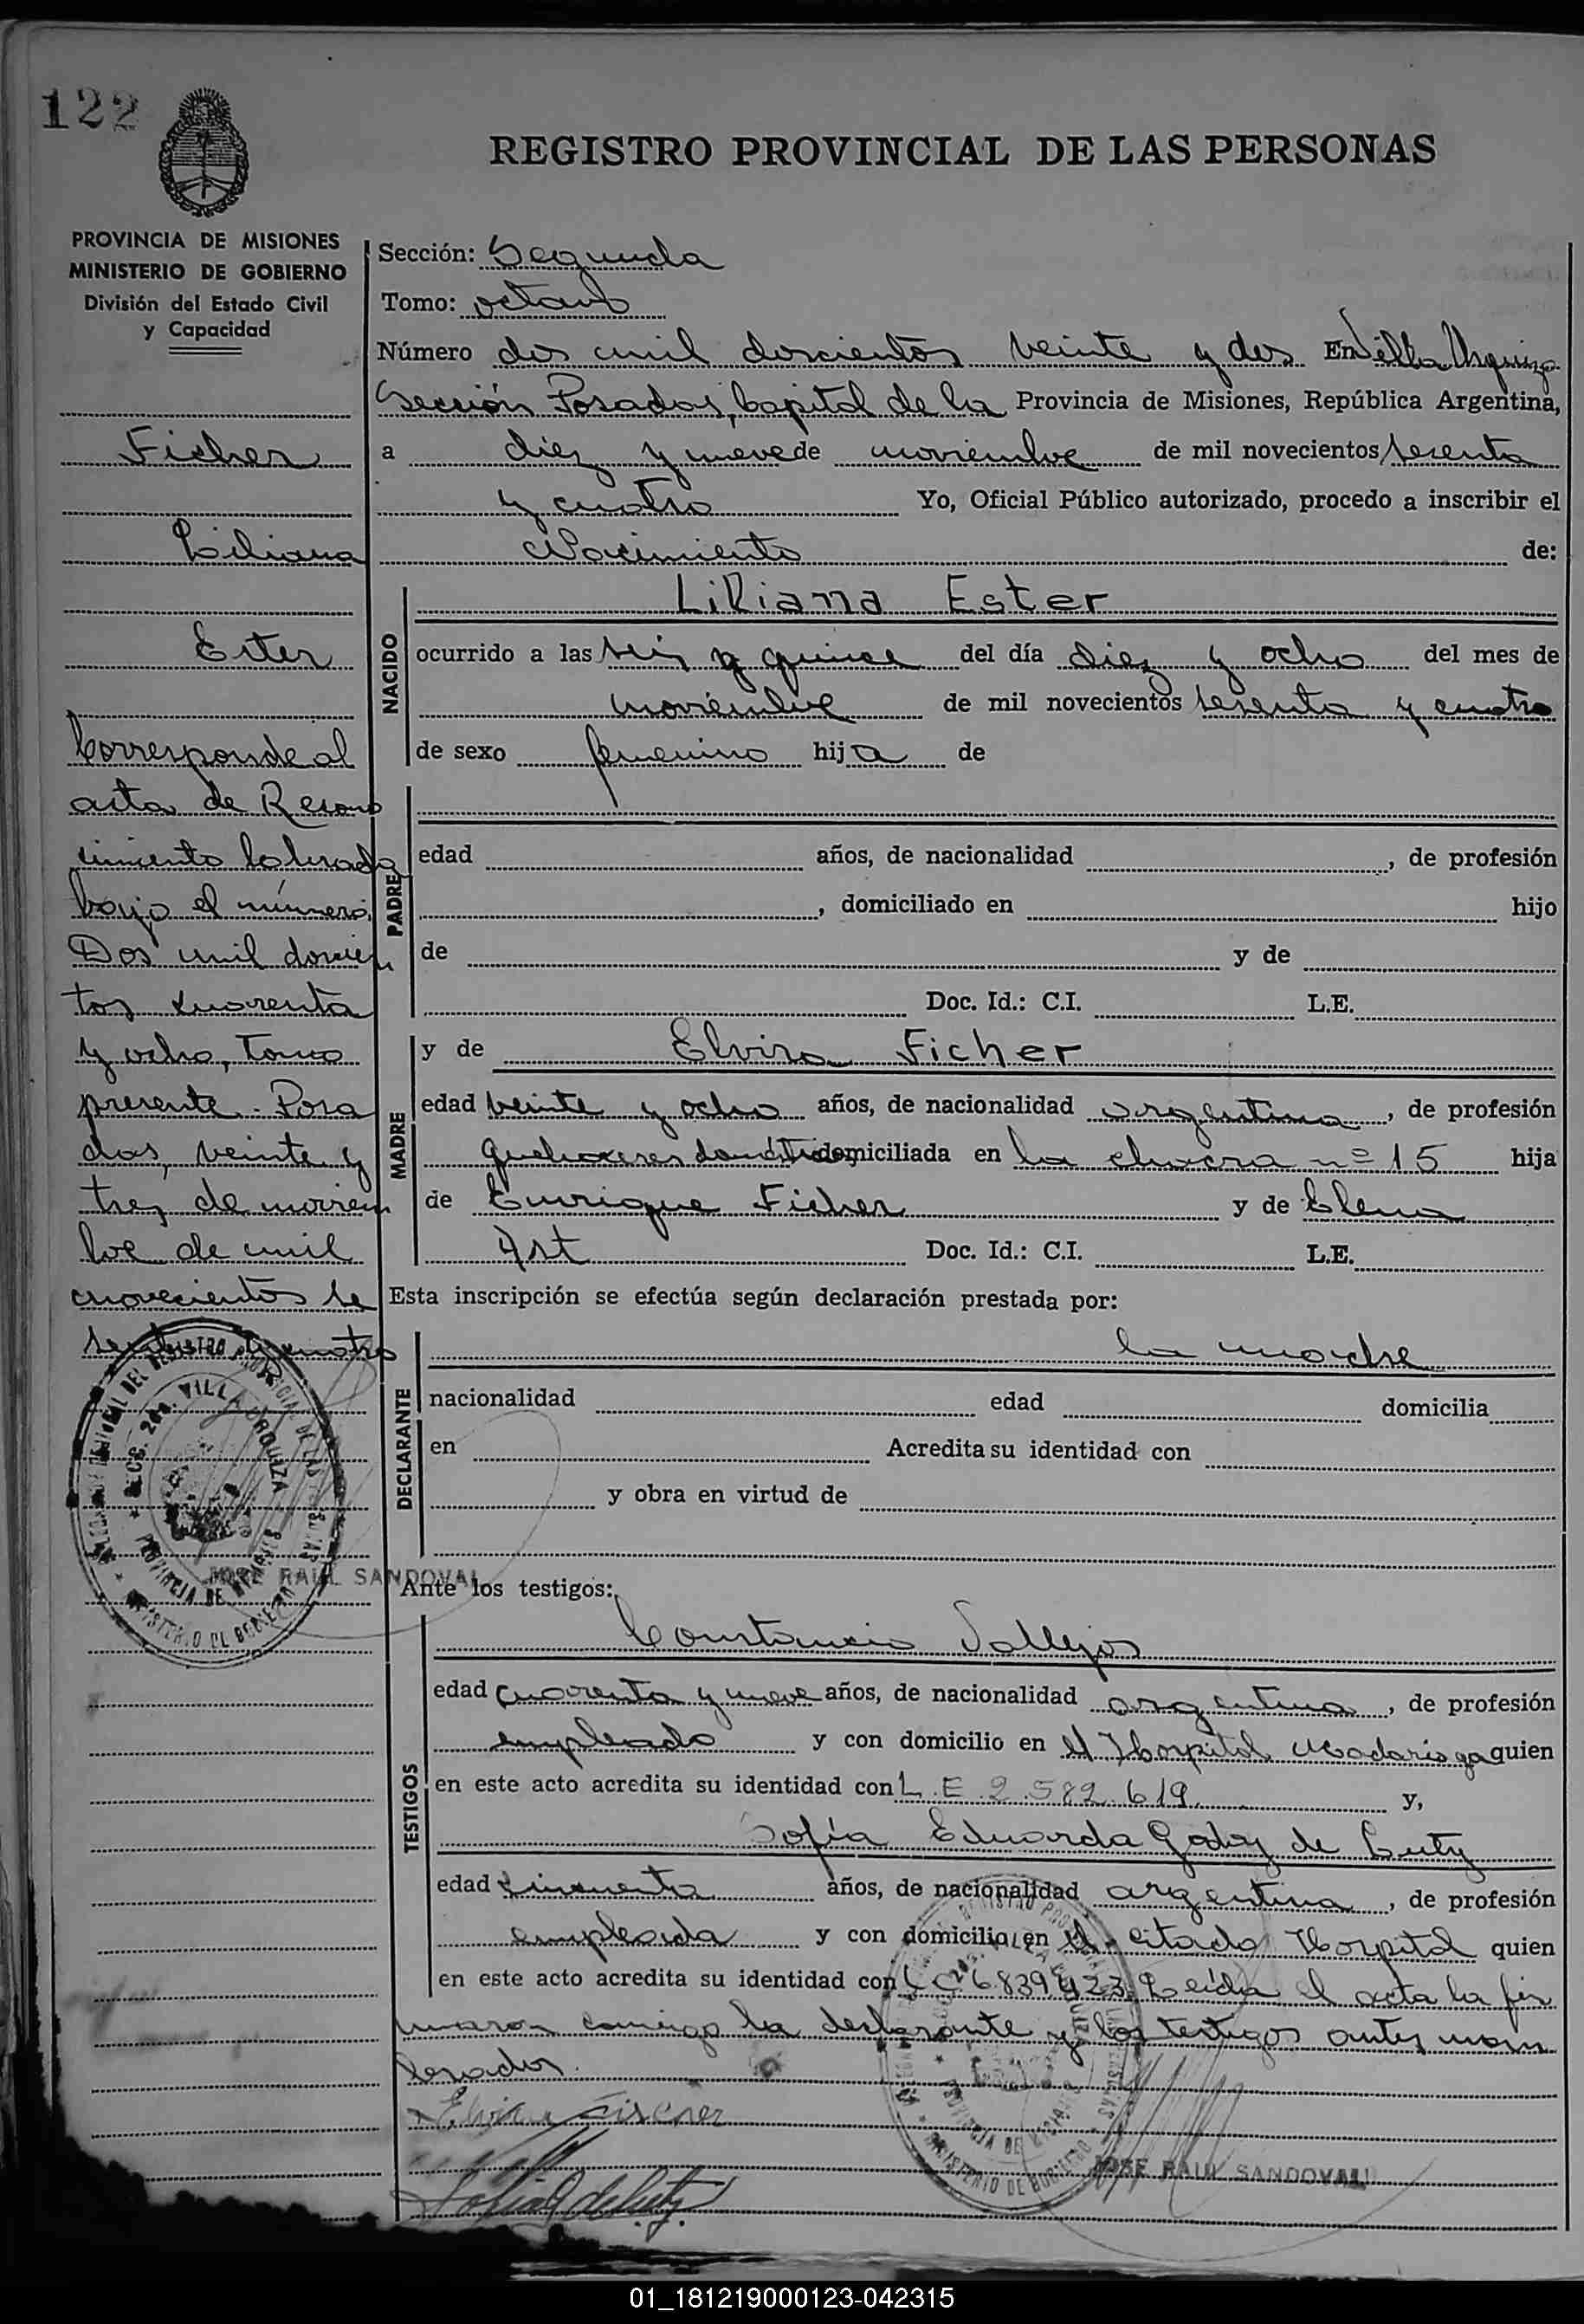 122
REGISTRO PROVINCIAL DE LAS PERSONAS
PROVINCIA DE MISIONES
MINISTERIO DE GOBIERNO
División del Estado Civil
y Capacidad
Ficher
Liliana
Ester
Corresponde al
acta de Recono
cimiento labrada
bajo el número
Dos mil doscien
tos cuarenta
y ocho, Tomo
presente. Posa
das, veinte y
tres de noviem
bre de mil
novecientos se
senta y cuatro
JOSE RAUL SANDOVAL
Sección: Segunda
Tomo: octavo
Número dos mil doscientos veinte y dos En Villa Urquiza
Sección Posadas, Capital de la Provincia de Misiones, República Argentina,
a diez y nueve de noviembre de mil novecientos sesenta
y cuatro Yo, Oficial Público autorizado, procedo a inscribir el
Nacimiento de:
NACIDO
Liliana Ester
ocurrido a las seis y quince del día diez y ocho del mes de
noviembre de mil novecientos sesenta y cuatro
de sexo femenino hija de
PADRE
edad años, de nacionalidad , de profesión
, domiciliado en hijo
de y de
Doc. Id.: C.I. L.E.
MADRE
y de Elvira Ficher
edad veinte y ocho años, de nacionalidad argentina , de profesión
quehaceres domésticos, domiciliada en la chacra nº 15 hija
de Enrique Ficher y de Elena
Ast Doc. Id.: C.I. L.E.
Esta inscripción se efectúa según declaración prestada por:
DECLARANTE
la madre
nacionalidad edad domicilia
en Acredita su identidad con
y obra en virtud de
Ante los testigos:
TESTIGOS
Constancio Vallejos
edad cuarenta y nueve años, de nacionalidad argentina , de profesión
empleado y con domicilio en el Hospital Madariaga quien
en este acto acredita su identidad con L.E. 2.582.619. y,
Sofía Eduarda Godoy de Luty
edad cincuenta años, de nacionalidad argentina , de profesión
empleada y con domicilio en el citado Hospital quien
en este acto acredita su identidad con LC 6839423. Leída el acta la fir
maron conmigo la declarante y los testigos antes nom
brados.
Elvira Fischer
JOSE RAUL SANDOVAL
01_181219000123-042315